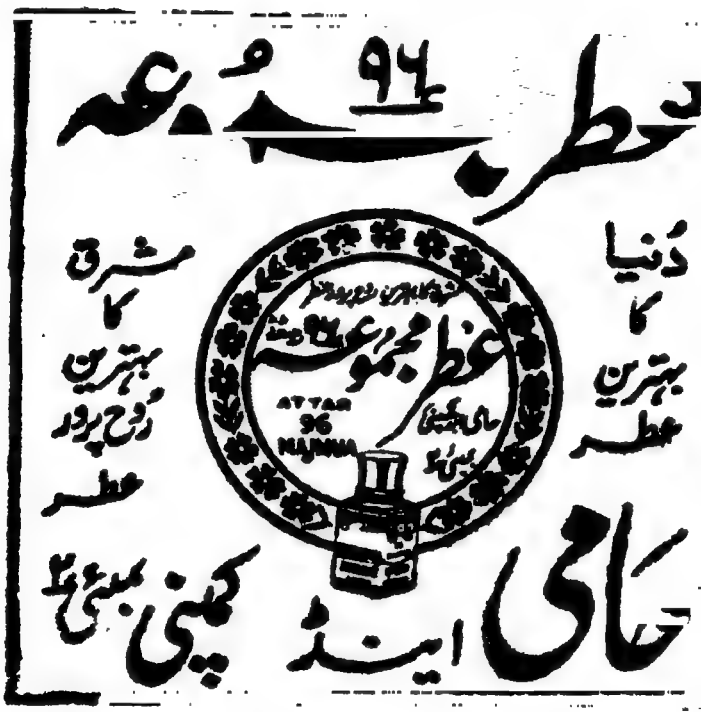 عطر مجموعہ ۹۶
دُنیا
کا
بہترین
عطر
مشرق
کا
بہترین
رُوح پرور
عطر
عطر مجموعہ ۹۶
ATTAR
96
MAJMUA
حامی اینڈ کمپنی
بمبئی ۳
حامی اینڈ کمپنی بمبئی ۳